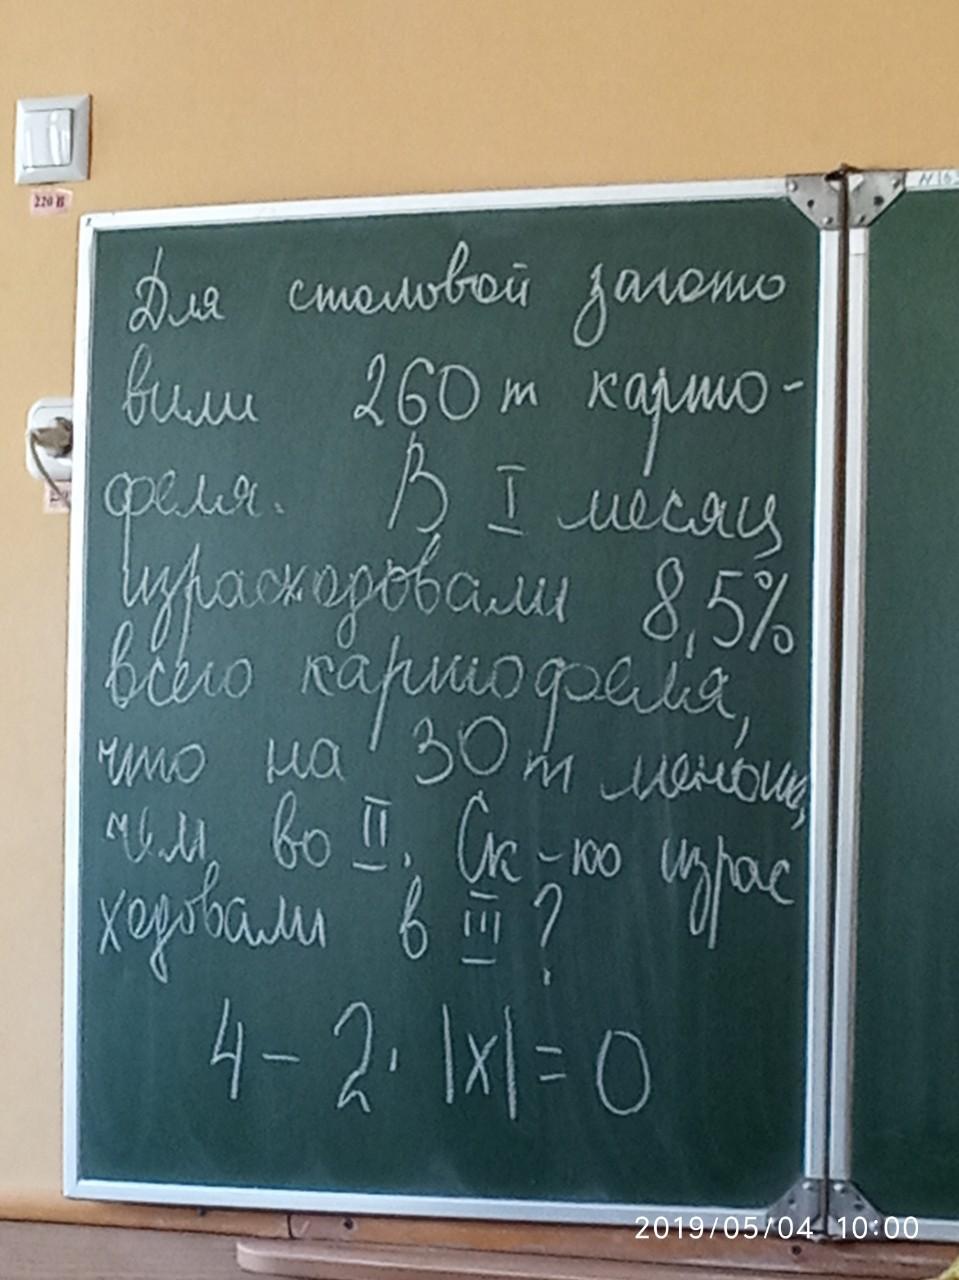 220 В
Для столовой загото
вили 260 т карто-
феля. В I месяц
израсходовали 8,5%
всего картофеля,
что на 30 т меньше,
чем во II. Ск-ко израс
ходовали в III?
4 - 2 · |x| = 0
2019/05/04 10:00